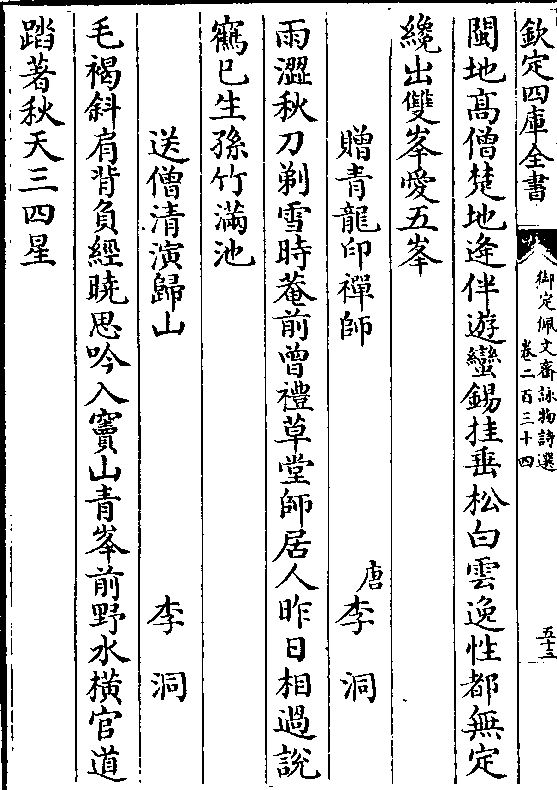 欽定四庫全書
御定佩文齋詠物詩選
卷二百三十四
五十三
閩地高僧楚地逢伴遊蠻錫挂垂松白雲逸性都無定
纔出雙峯愛五峯
贈青龍印禪師
唐李洞
雨澀秋刀剃雪時菴前曾禮草堂師居人昨日相過說
鶴巳生孫竹滿池
送僧清演歸山
李洞
毛褐斜肩背負經曉思吟入竇山青峯前野水橫官道
踏著秋天三四星